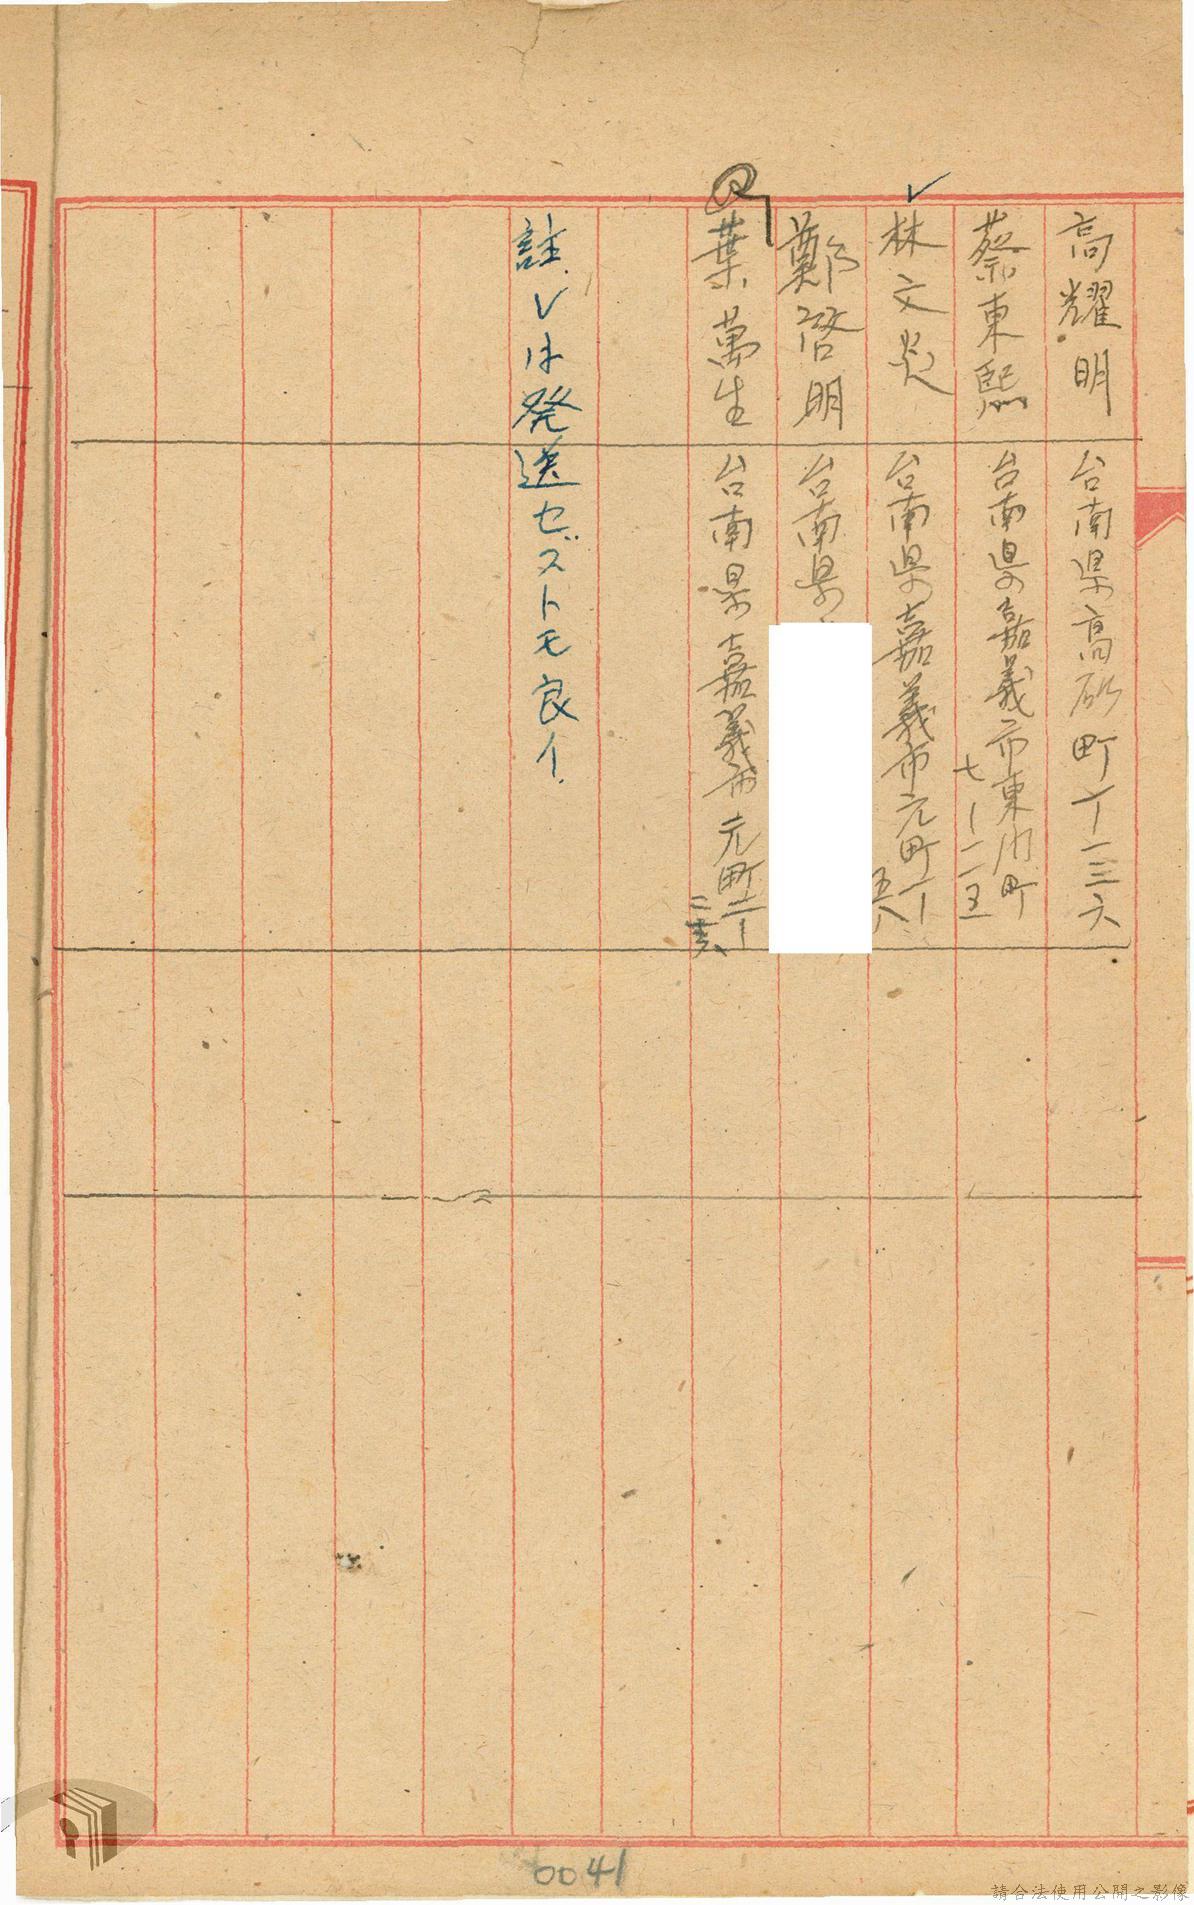 高耀明 台南県高砂町一ー一三六
蔡東熙 台南県嘉義市東門町
七ー一一五
✓
林文炎 台南県嘉義市元町一ー
五八
鄭啓明 台南県
葉萬生 台南県嘉義市元町
註. レハ発送セズトモ良イ.
0041
請合法使用公開之影像